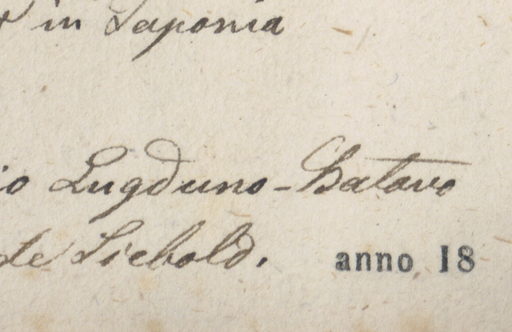 in Japonia
io Lugduno-Batavo
de Siebold. anno 18